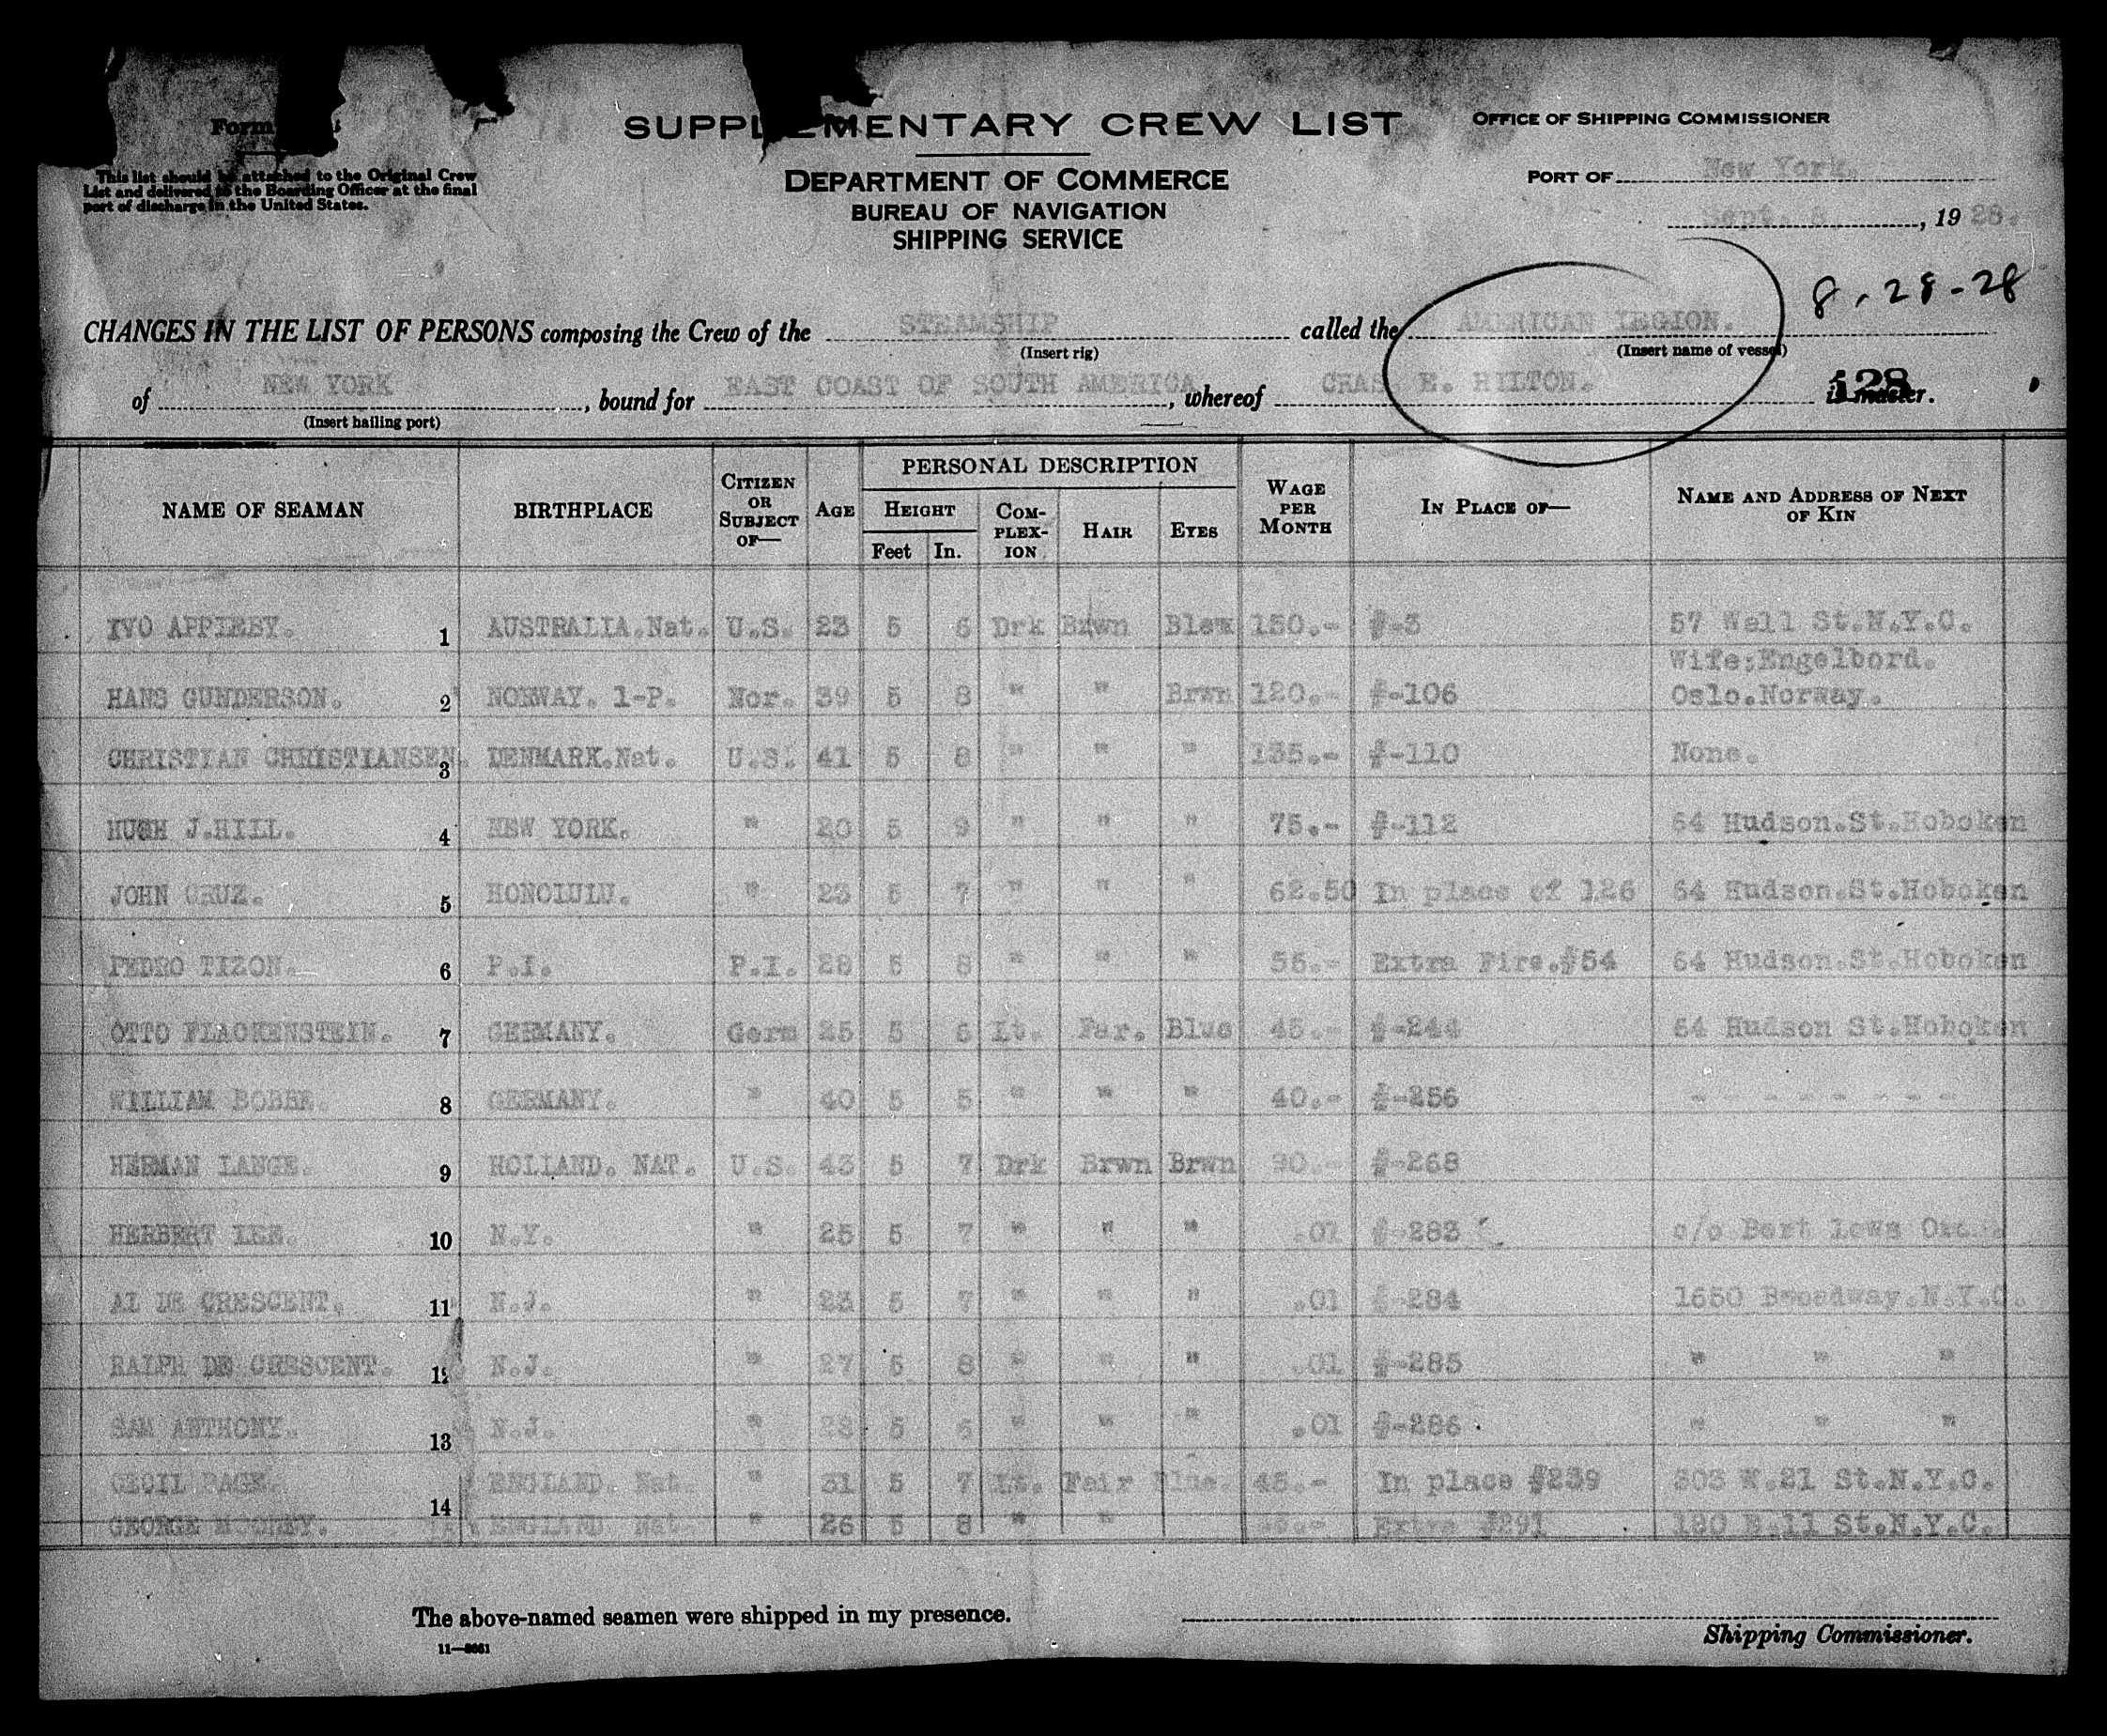 Form
SUPPLEMENTARY CREW LIST
OFFICE OF SHIPPING COMMISSIONER
This list should be attached to the Original Crew
List and delivered to the Boarding Officer at the final
port of discharge in the United States.
DEPARTMENT OF COMMERCE
BUREAU OF NAVIGATION
SHIPPING SERVICE
PORT OF New York.
Sept. 8, 1928.
8-28-28
CHANGES IN THE LIST OF PERSONS composing the Crew of the STEAMSHIP called the AMERICAN LEGION.
(Insert rig) (Insert name of vessel)
of NEW YORK, bound for EAST COAST OF SOUTH AMERICA, whereof CHAS E. HILTON. is master.
128
(Insert hailing port)
NAME OF SEAMAN BIRTHPLACE CITIZEN OR SUBJECT OF— AGE PERSONAL DESCRIPTION WAGE PER MONTH IN PLACE OF— NAME AND ADDRESS OF NEXT OF KIN
HEIGHT COMPLEXION HAIR EYES
Feet In.
IVO APPLEBY. 1 AUSTRALIA.Nat. U.S. 23 5 6 Drk Brwn 150.- #-3 57 Wall St.N.Y.C.
Wife:Engelbord.
HANS GUNDERSON. 2 NORWAY. 1-P. Nor. 39 5 8 " " Brwn 120.- #-106 Oslo.Norway.
CHRISTIAN CHRISTIANSEN. 3 DENMARK.Nat. U.S. 41 5 8 " " " 135.- #-110 None.
HUGH J.HILL. 4 NEW YORK. " 20 5 9 " " " 75.- #-112 64 Hudson.St.Hoboken
JOHN CRUZ. 5 HONOLULU. " 23 5 7 " " " 62.50 In place of 126 64 Hudson.St.Hoboken
PEDRO TIZON. 6 P.I. P.I. 28 5 8 " " " 55.- Extra Fire.#54 64 Hudson.St.Hoboken
OTTO FLACKENSTEIN. 7 GERMANY. Germ 25 5 6 Lt. Far. Blue 45.- #-244 64 Hudson St.Hoboken
WILLIAM BOBBE. 8 GERMANY. " 40 5 5 " " " 40.- #-256 - - - - - - - -
HERMAN LANGE. 9 HOLLAND. NAT. U.S. 43 5 7 Drk Brwn Brwn 90.- #-268
HERBERT LEE. 10 N.Y. " 25 5 7 " " " .01 #-283 c/o Bert Lows
AL DE CRESCENT. 11 N.J. " 23 5 7 " " " .01 #-284 1650 Broadway.N.Y.C.
RALPH DE CRESCENT. 12 N.J. " 27 5 8 " " " .01 #-285 " " "
SAM ANTHONY. 13 N.J. " 28 5 6 " " " .01 #-286 " " "
CECIL PAGE. 14 ENGLAND. Nat. " 31 5 7 Lt. Fair Blue. 45.- In place #239 303 W.21 St.N.Y.C.
GEORGE ENGLAND Nat. " 26 5 8 " " Extra #291 180 E.11 St.N.Y.C.
The above-named seamen were shipped in my presence.
11—8661
Shipping Commissioner.